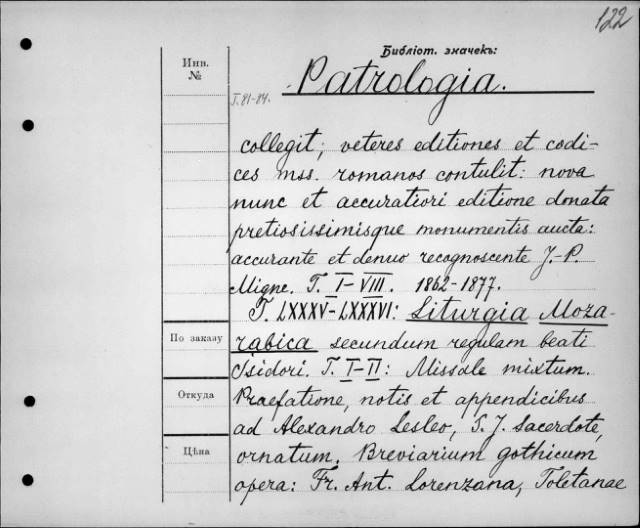 122
Библіот. значекъ:
Инв.
№
Patrologia.
T. 81-84.
collegit; veteres editiones et codi-
ces mss. romanos contulit: nova
nunc et accuratiori editione donata
pretiosissimisque monumentis aucta:
accurante et denuo recognoscente J.-P.
Migne. T. I-VIII. 1862-1877.
T. LXXXV-LXXXVI: Liturgia Moza-
По заказу
rabica secundum regulam beati
Isidori. T. I-II: Missale mixtum.
Откуда
Praefatione, notis et appendicibus
ad Alexandro Lesleo, S. J. sacerdote,
Цѣна
ornatum. Breviarium gothicum
opera: Fr. Ant. Lorenzana, Toletanae